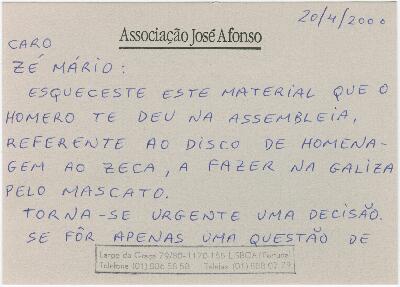 20/4/2000
Associação José Afonso
CARO
ZÉ MÁRIO:
ESQUECESTE ESTE MATERIAL QUE O
HOMERO TE DEU NA ASSEMBLEIA,
REFERENTE AO DISCO DE HOMENA-
GEM AO ZECA, A FAZER NA GALIZA
PELO MASCATO.
TORNA-SE URGENTE UMA DECISÃO.
SE FÔR APENAS UMA QUESTÃO DE
Largo da Graça 79/80-1170-165 LISBOA/Portugal
Telefone (01) 886 58 58 Telefax (01) 888 07 79